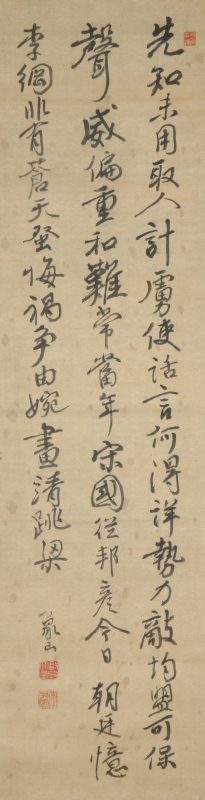 先知未用取人計虜使話言何得詳勢力敵均盟可保
聲威偏重和難常當年宋國從邦彦今日朝廷憶
李綱非有蒼天發悔禍爭由婉畫清跳梁
象山